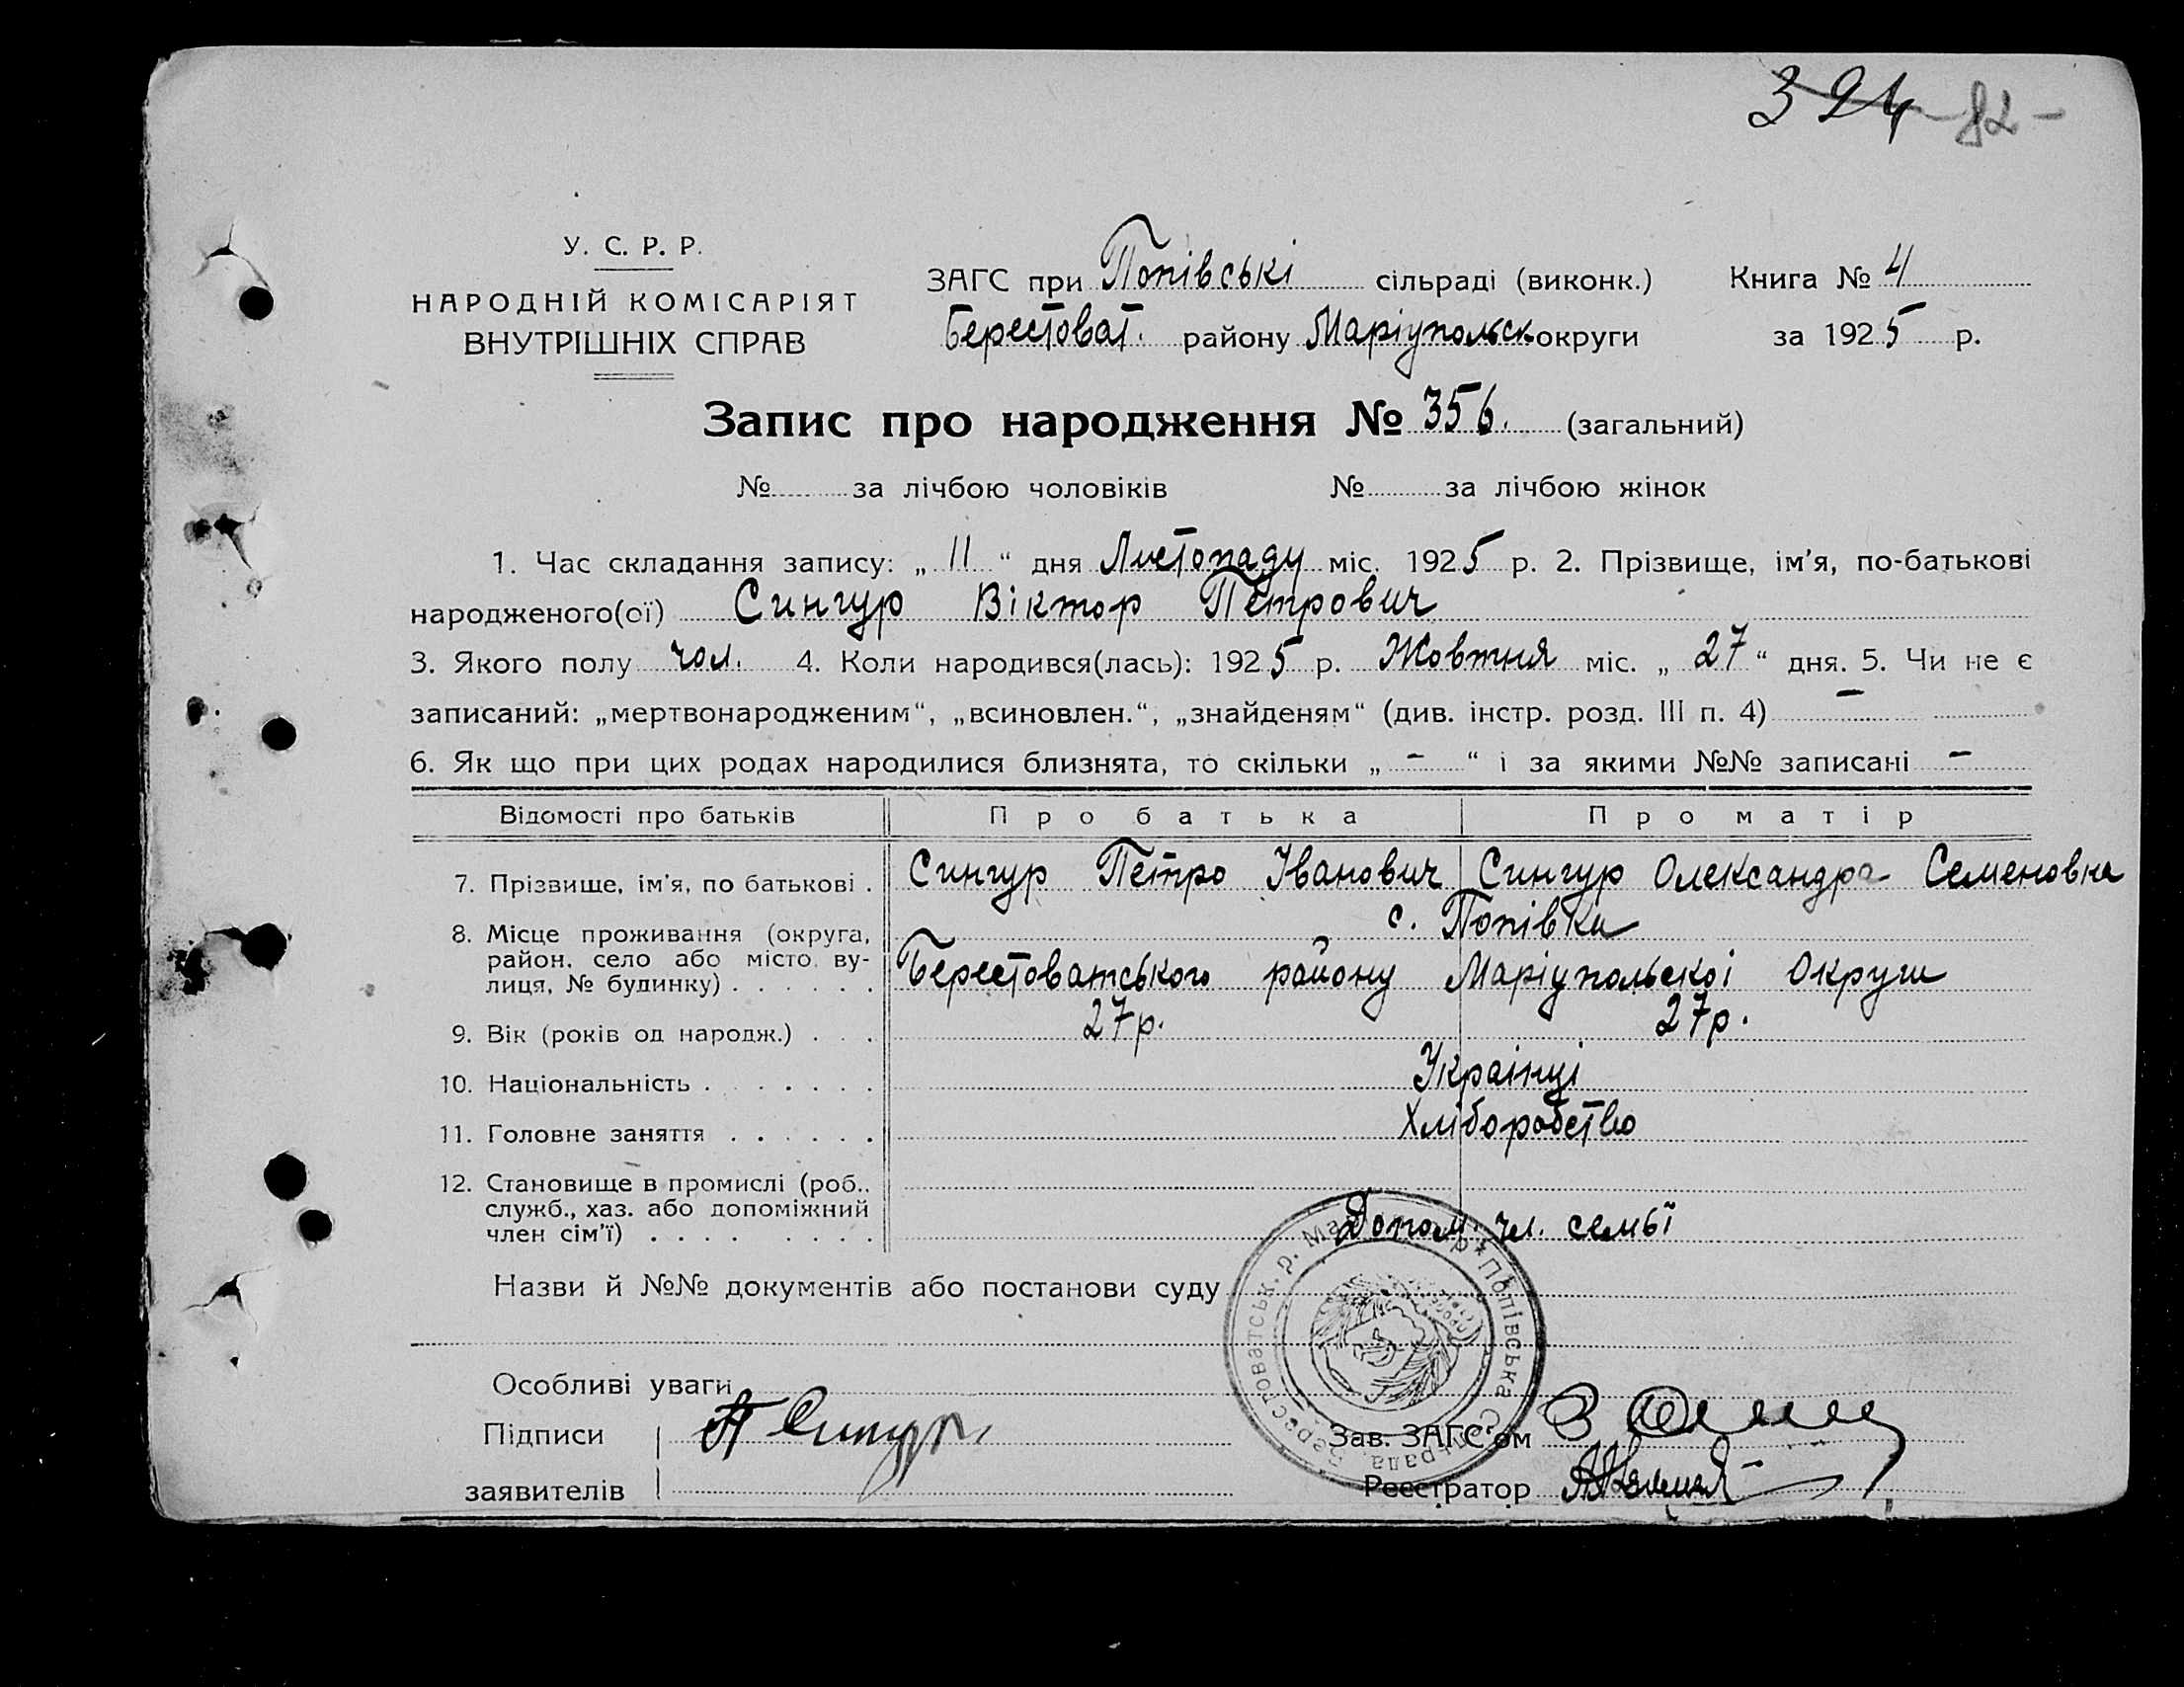 324 82 -
У. С. Р. Р.
НАРОДНІЙ КОМІСАРІЯТ
ВНУТРІШНІХ СПРАВ
ЗАГС при Попівські сільраді (виконк.) Книга № 4
Берестоват. району Маріупольск округи за 1925 р.
Запис про народження № 356. (загальний)
№ за лічбою чоловіків № за лічбою жінок
1. Час складання запису: „ 11 “ дня Листопаду міс. 1925 р. 2. Прізвище, ім’я, по-батькові
народженого(ої) Сингур Віктор Петрович
3. Якого полу чол. 4. Коли народився(лась): 1925 р. Жовтня міс. „ 27 “ дня. 5. Чи не є
записаний: „мертвонародженим“, „всиновлен.“, „знайденям“ (див. інстр. розд. III п. 4) –
6. Як що при цих родах народилися близнята, то скільки „ – “ і за якими №№ записані –
Відомості про батьків Про батька Про матір
7. Прізвище, ім’я, по батькові . Сингур Петро Іванович Сингур Олександра Семеновна
8. Місце проживання (округа, район, село або місто, вулиця, № будинку) . . . . . .
с. Попівки
Берестоватського району Маріупольскої Округи
9. Вік (років од народж.) . . . 27р. 27р.
10. Національність . . . . . . . Українці
11. Головне заняття . . . . . . Хліборобство
12. Становище в промислі (роб., служб., хаз. або допоміжний член сім’ї) . . . . . . . .
Допом. чл. семьї
Назви й №№ документів або постанови суду
Особливі уваги
Підписи П Сингур
заявителів
Зав. ЗАГС’ом
Реєстратор
Попівська Сільрада Берестоватськ. р.